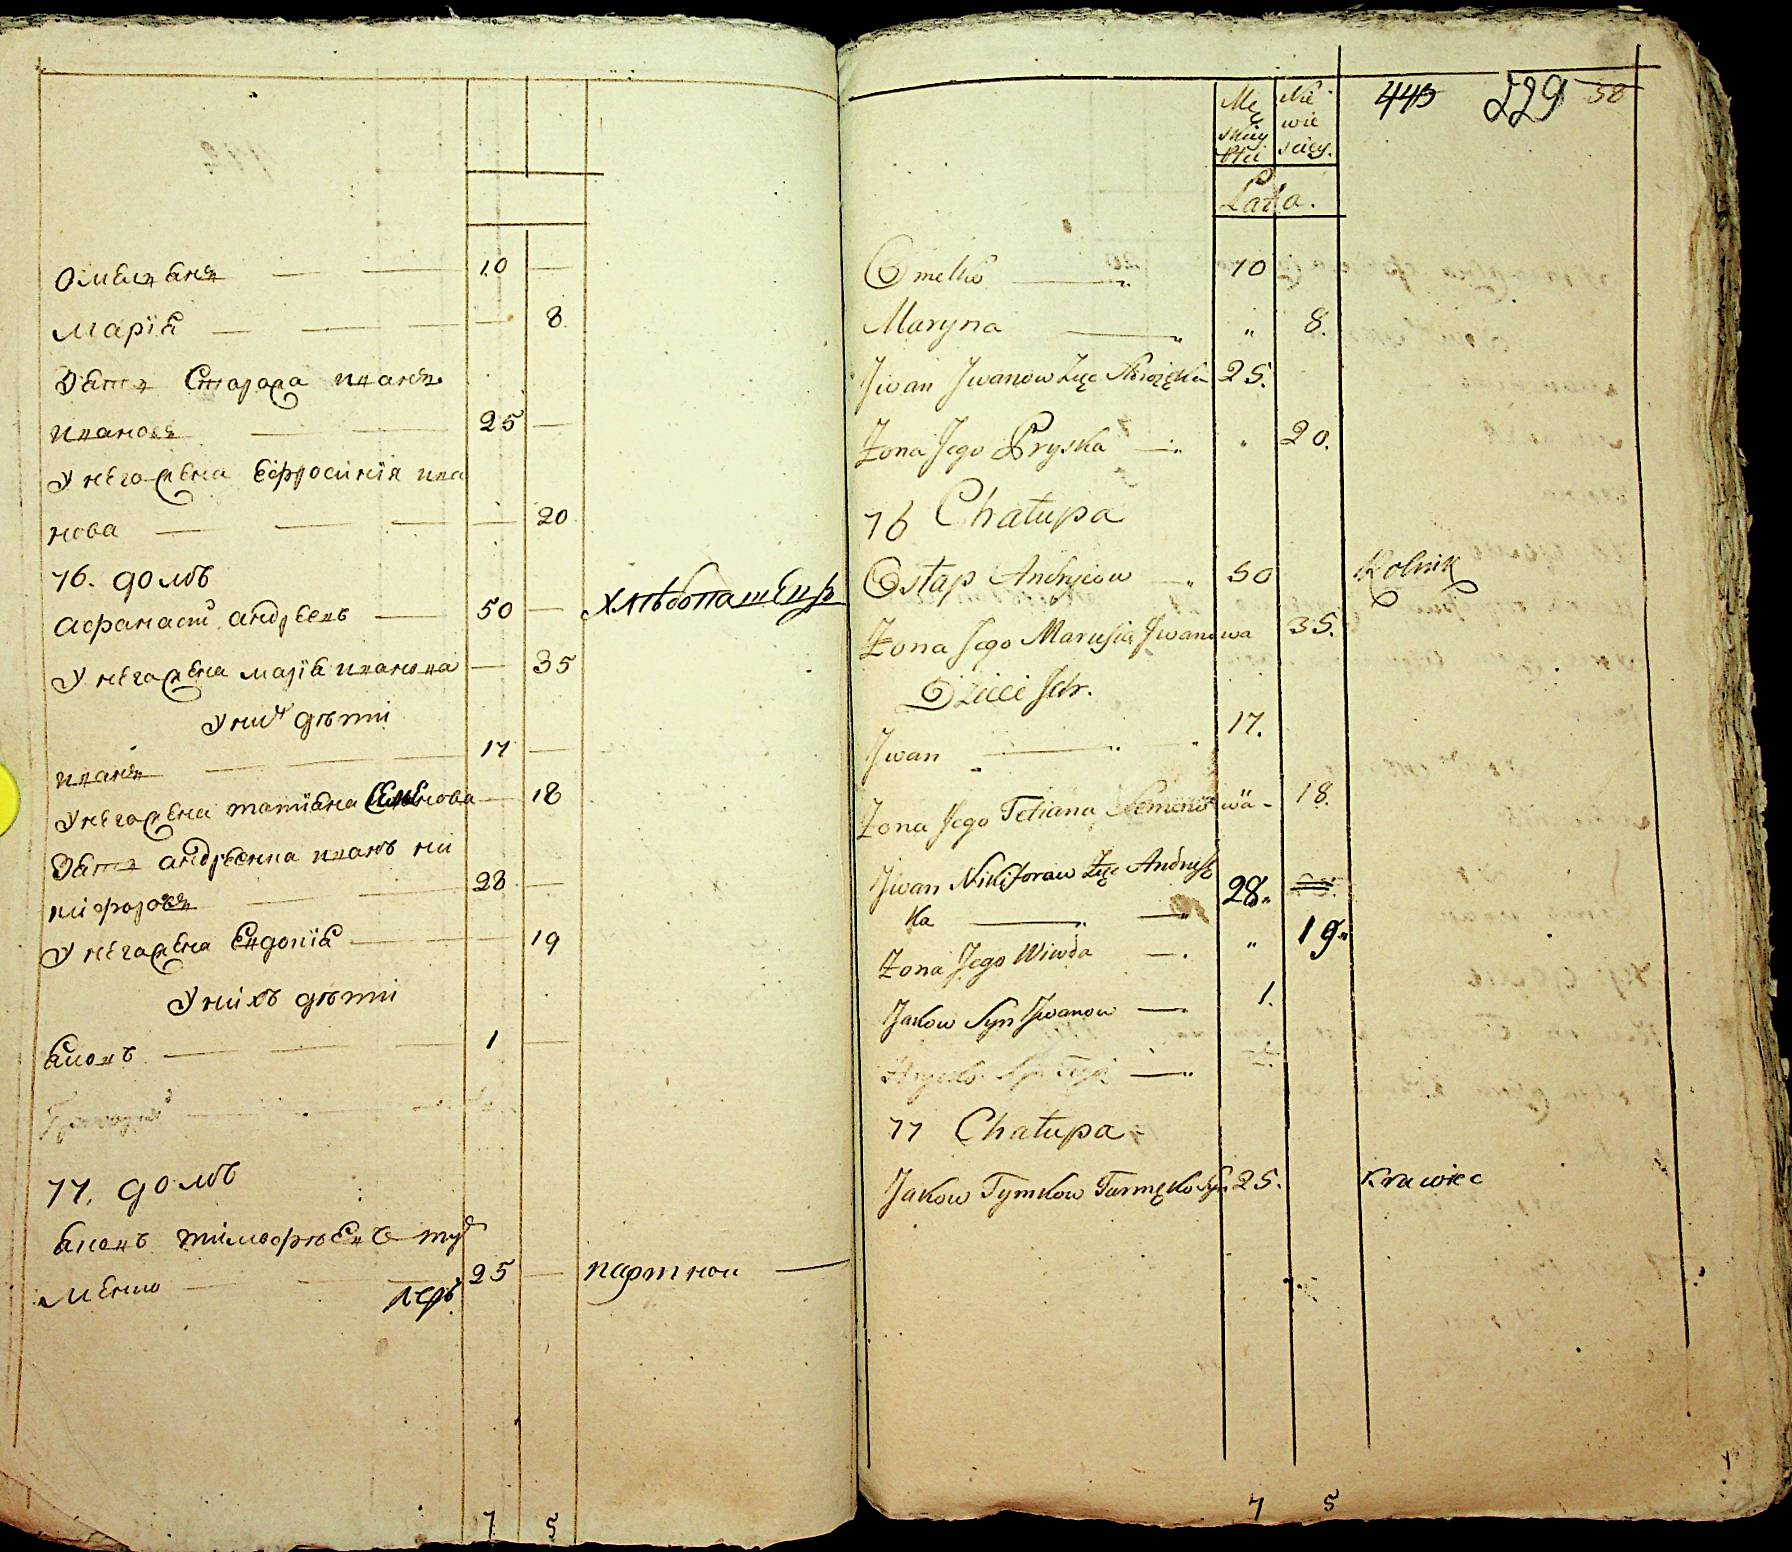 Омелѧнъ — — 10 —
Марїя — — — — 8
Зять Сторожа иванъ
ивановъ — — 25 —
У него жена Ефросинїя ива
нова — — — — 20
76. домъ
афанасїй андреевъ — 50 — хлѣбопашецъ
У него жена марїя иванова — 35
У них дѣти
иванъ — — 17 —
У него жена татїяна Семенова — 18
Зять андреенка иванъ ни
кифоровъ — — 28 —
У него жена Евдокїя — — 19
У нихъ дѣти
яковъ — — — 1 —
77. домъ
яковъ тимофѣевъ
25 — портной —
7 5
Mę
skiey
Płci
Nie
wie
sciey.
443 229 58
Lata.
Omelko — 10
Maryna — " 8.
Jwan Jwanow Zięć 25.
Żona Jego Pryska — " 20.
76 Chałupa
Ostap Andryiow — 50 Rolnik
Żona Jego Marusia Jwanowa 35.
Dzieci Jch.
Jwan — 17.
Żona Jego Tetiana Semenowa - 18.
Jwan Nikiforaw Zięć Andrysz
ka — 28.
Żona Jego Wiwda — " 19.
Jakow Syn Jwanow — 1.
77 Chałupa
Jakow Tymkow Syn 25. Krawiec
7 5